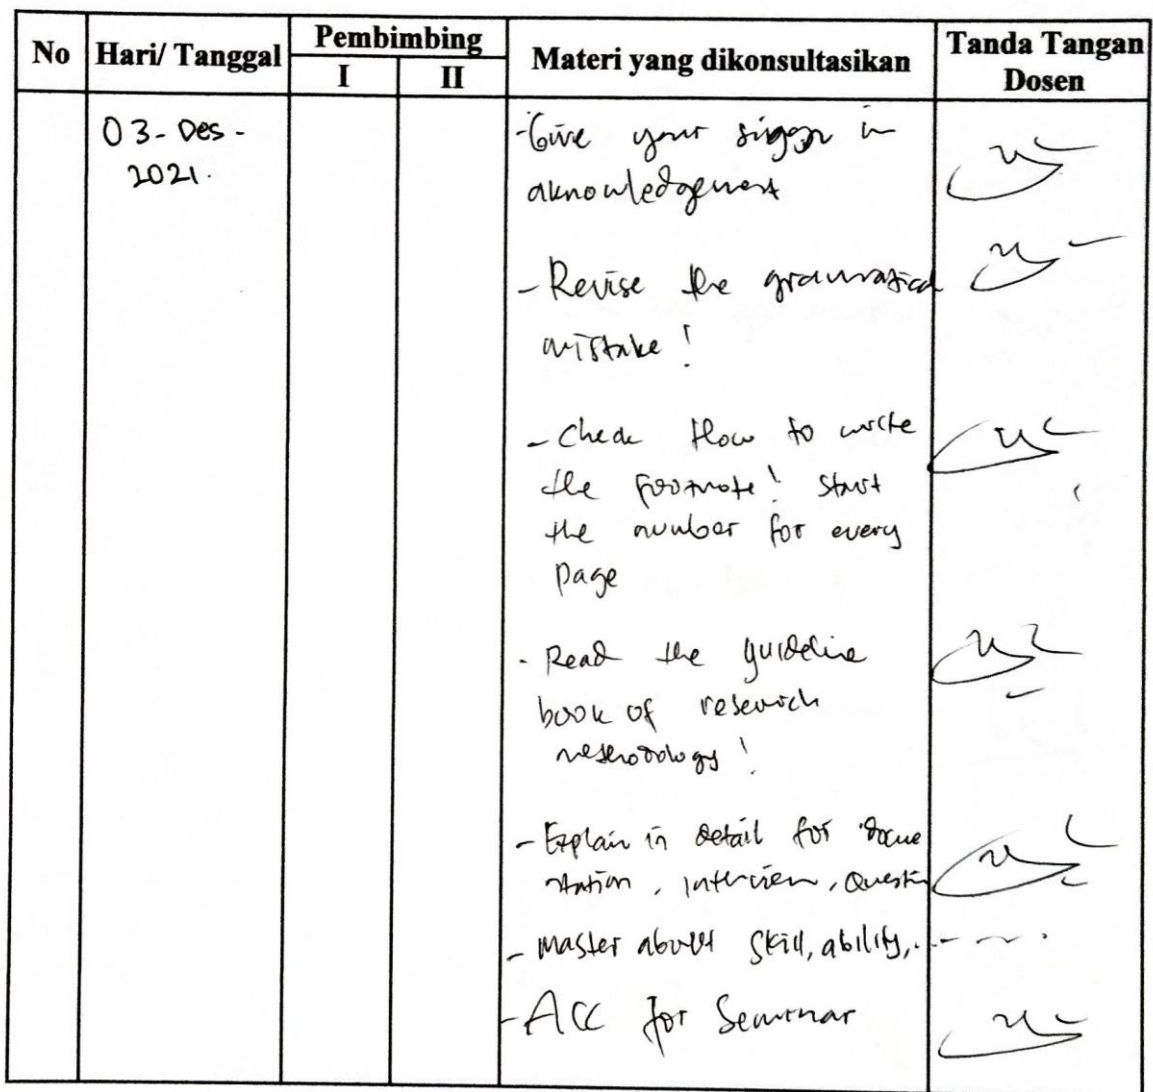 No Hari/ Tanggal Pembimbing Materi yang dikonsultasikan Tanda Tangan Dosen
I II
03-Des-
2021.
- Give your in
aknowledgment
- Revise the gramatical
mistake!
- Check How to write
the footnote! start
the number for every
page
- Read the guideline
book of research
methodology!
- Explain in detail for docume
ntation, interview, Questi
- master about skill, ability, ...
- ACC for Seminar